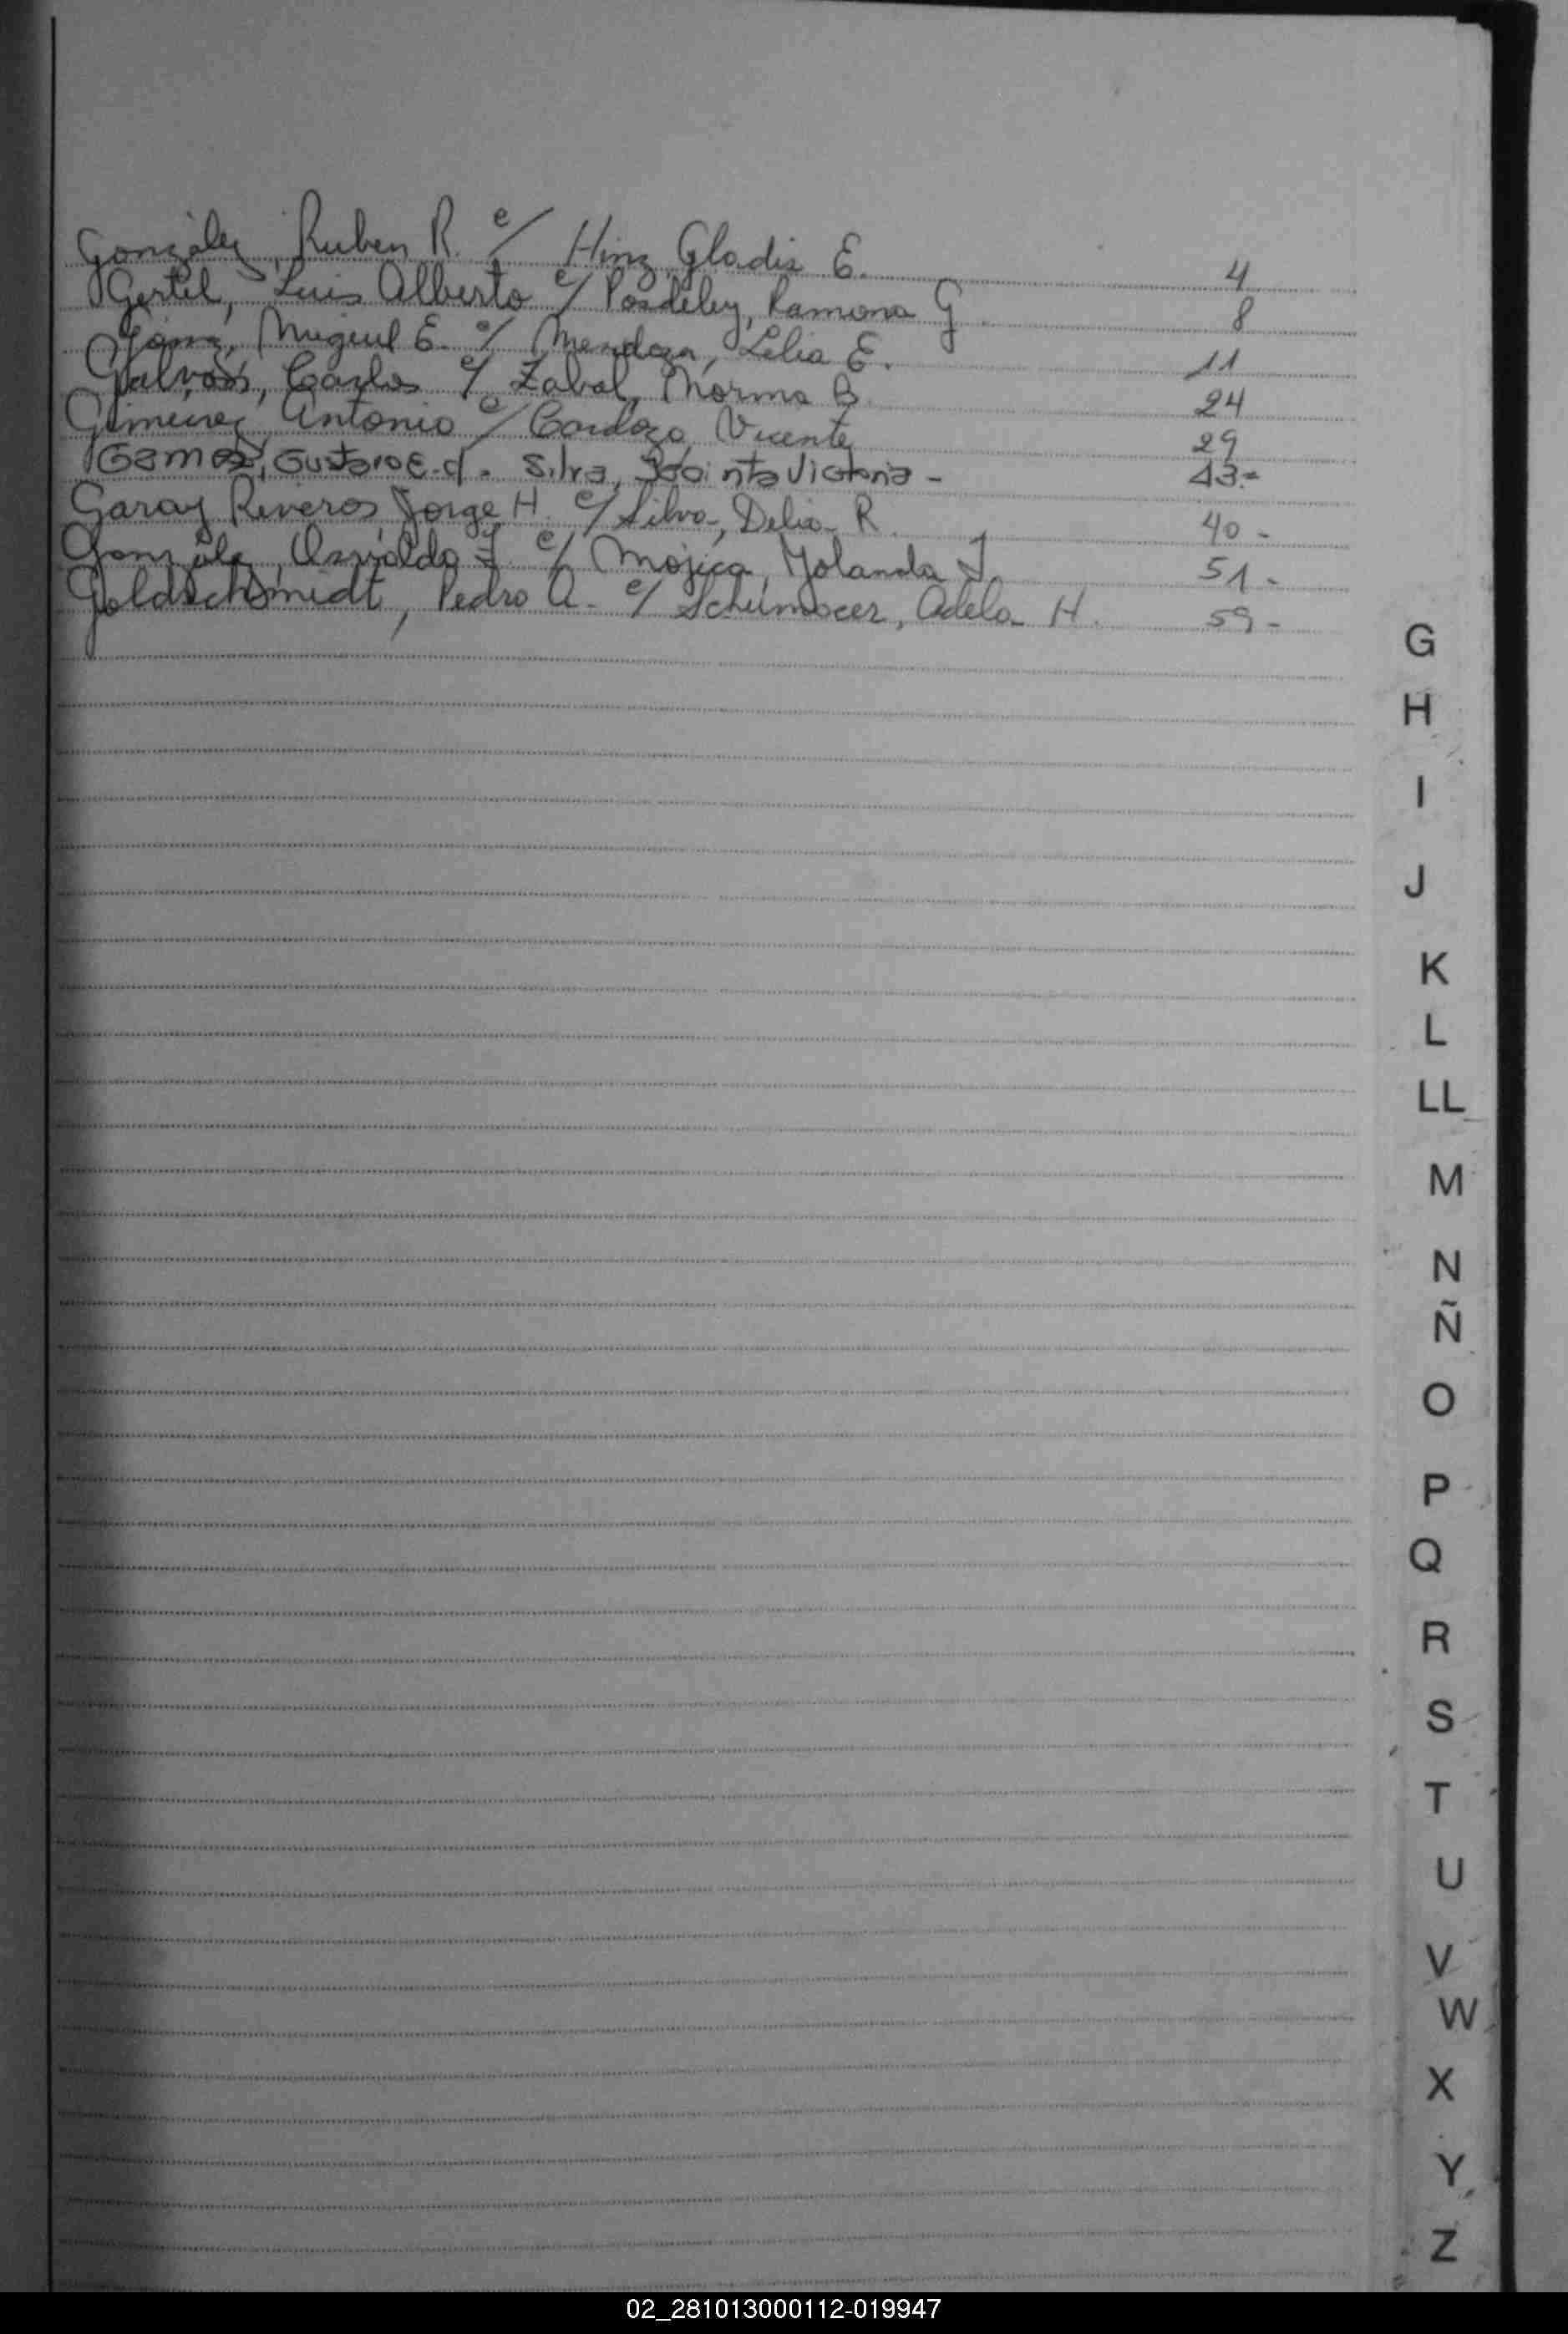 González, Ruben R. c/ Hinz Gladis E. 4
Gertel, Luis Alberto c/ Posdeley, Ramona G. 8
Miguel E. c/ Mendoza, Lelia E. 11
Galvan, Carlos c/ Zabal, Norma B. 24
Gimenez Antonio c/ Cardozo, Vicenta 29
Gamez, Gustavo E. c/. Silva, Victoria - 43.=
Garay Riveros Jorge H. c/ Silva, Delia R. 40 -
González, Osvaldo J. c/ Mojica, Yolanda J. 51 -
Goldschmidt, Pedro A. c/ Schumocer, Adela H. 59 -
G
H
I
J
K
L
LL
M
N
Ñ
O
P
Q
R
S
T
U
V
W
X
Y
Z
02_281013000112-019947